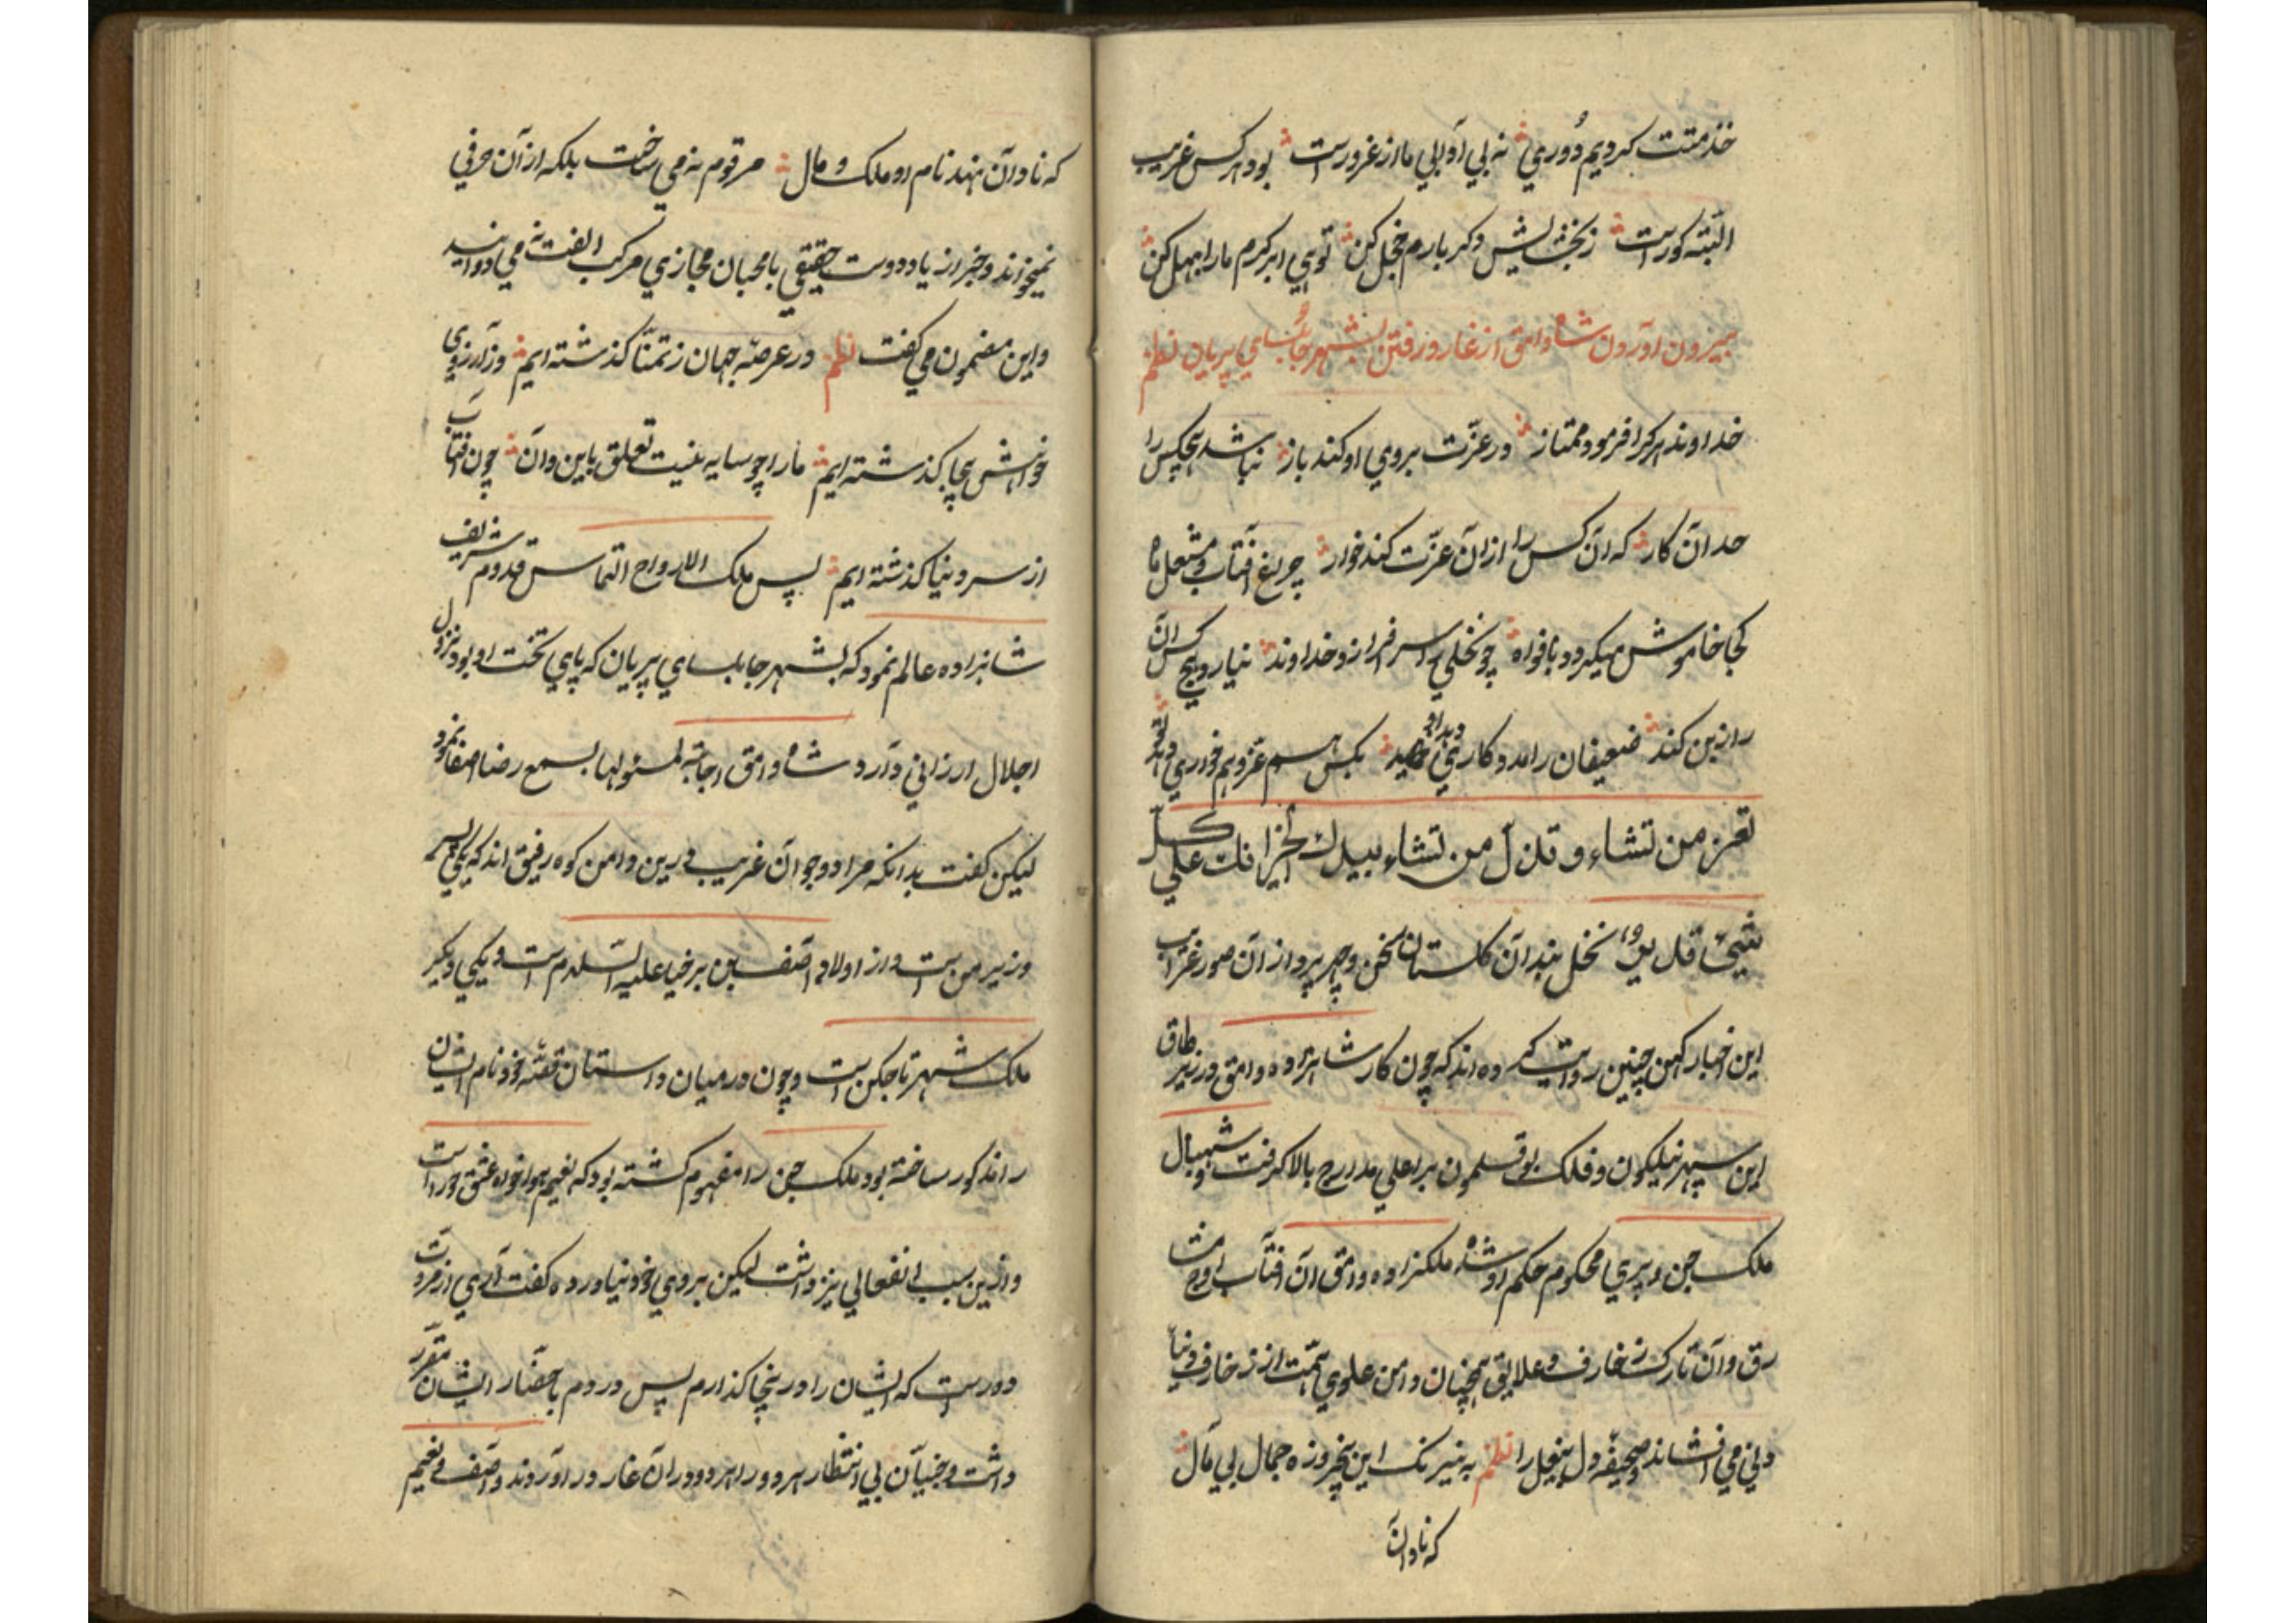 خدمتت کردیم دوری نه بی آدابی ما از غرورست بود هر کس غریب
البته کورست زبخشایش دکر بارم خجل کن توئی ابر کرم ما را بهل کن
بیرون آوردن شاه وامق از غار و رفتن بشهر جابلسای پریان نظم
خداوند هر کرا فرمود ممتاز در عزّت بروی او کند باز نباشد هیچکس را
حد آن کار که آن کس را از آن عزّت کند خوار چراغ آفتاب و مشعل ماه
کجا خاموش میکردد بافواه چو نخلی سرفرازد خداوند نیارد هیچ کس آن
را ازبن کند ضعیفان را مددکاری دهد او بکس هم عزّ و هم خواری دهد او
تعز من تشاء و تذل من تشاء بیدك الخیر انك علی کلّ
شیئ قدیر نخل بندان کلستان سخن و چهره پردازان صور غرایب
این اخبار کهن چنین روایت کرده اند که چون کار شاهزاده وامق در زیر طاق
این سپهر نیلکون و فلک بوقلمون بر اعلی مدارج بالا کرفت و شهبال
ملک جن و پری محکوم حکم او شد ملکزاده وامق آن آفتاب اوج مشا
رق و آن تارک زخارف و علایق همچنان دامن علوی همّت از زخارف دنیا
دنی می افشاند و صحیفه دل بیغل را نظم به نیرنک این پنجروزه جمال بی مآل
که نادان
که نادان نهد نام او ملک و مال مرقوم نه می ساخت بلکه از آن حرفی
نمیخواند و جز از یاد دوست حقیقی با محبان مجازی مرکب الفت نه می دوانید
و این مضمون می کفت نظم در عرصه جهان ز تمنّا کذشته ایم وز آرزوی
خواهش بیجا کذشته ایم ما را چو سایه نیست تعلق باین و آن چون آفتاب
از سر دنیا کذشته ایم پس ملک الارواح التماس قدوم شریف
شاهزاده عالم نمود که بشهر جابلسای پریان که پای تخت او بود نزول
اجلال ارزانی دارد شاه وامق اجابة لمسئولها بسمع رضا اصغا نمود
لیکن کفت بدانکه مرا دو جوان غریب درین دامن کوه رفیق اند که یکی پسر
وزیر من است و از اولاد آصف بن برخیا علیه السّلام است و یکی دیکر
ملک شهر تاجکن است و چون در میان داستان قصّه خود نام ایشان
را مذکور ساخته بود ملک جن را مفهوم کشته بود که نعیم هواخواه عشق حور است
و ازین سبب انفعالی نیز داشت لیکن بروی خود نیاورده کفت آری از مروّت
دور است که ایشان را در اینجا کذارم پس در دم باحضار ایشان مقرّر
داشت و جنیان بی انتظار هر دو را هر دو در آن غار در آوردند و آصف و نعیم